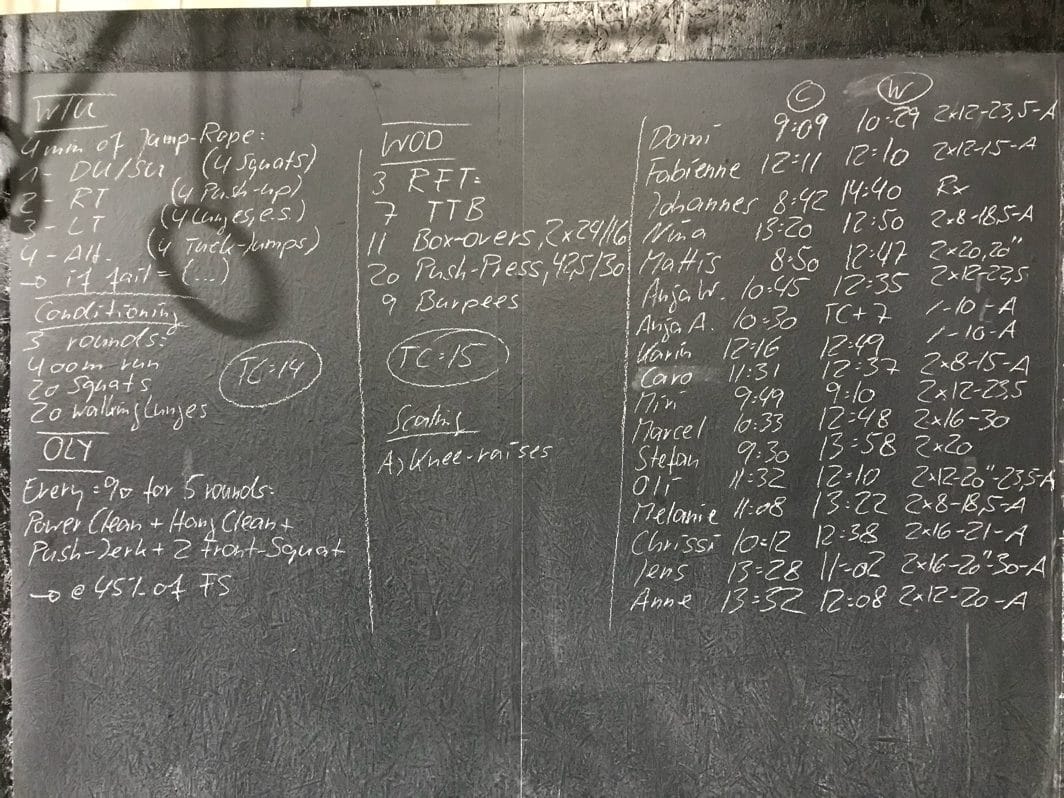 WTU
4 min of Jump-Rope:
1- DU/SU (4 Squats)
2- RT (4 Push-up)
3- LT (4 Lunges, e.s.)
4- Alt. (4 Tuck-Jumps)
→ if fail = (...)
Conditioning
3 rounds:
400m run
20 Squats
20 walking Lunges
TC=14
OLY
Every :90 for 5 rounds:
Power Clean + Hang Clean +
Push-Jerk + 2 front-Squat
→ @ 45% of FS
WOD
3 RFT:
7 TTB
11 Box-overs, 2x24/16
20 Push-Press, 42,5/30
9 Burpees
TC=15
Scaling
A) Knee-raises
C W
Domi 9:09 10:29 2x12-23,5-A
Fabienne 12:11 12:10 2x12-15-A
Johannes 8:42 14:40 Rx
Nina 13:20 12:50 2x8-18,5-A
Mattis 8:50 12:47 2x20,20"
Anja W. 10:45 12:35 2x12-23,5
Anja A. 10:30 TC+7 /-10-A
Karin 12:16 12:49 /-10-A
Caro 11:31 12:37 2x8-15-A
Miri 9:49 9:10 2x12-23,5
Marcel 10:33 12:48 2x16-30
Stefan 9:30 13:58 2x20
Olli 11:32 12:10 2x12-20"-23,5-A
Melanie 11:08 13:22 2x8-18,5-A
Chrissi 10:12 12:38 2x16-21-A
Jens 13:28 11:02 2x16-20"-30-A
Anne 13:32 12:08 2x12-20-A